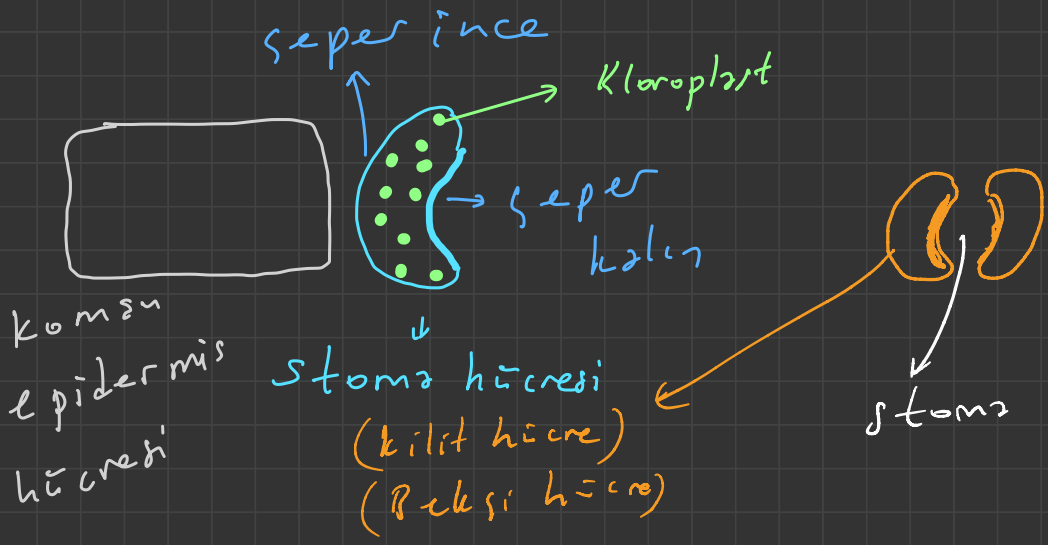 seper ince
Kloroplast
seper
kalın
komşu
epidermis
hücresi
stoma hücresi
(kilit hücre)
(Bekçi hücre)
stoma